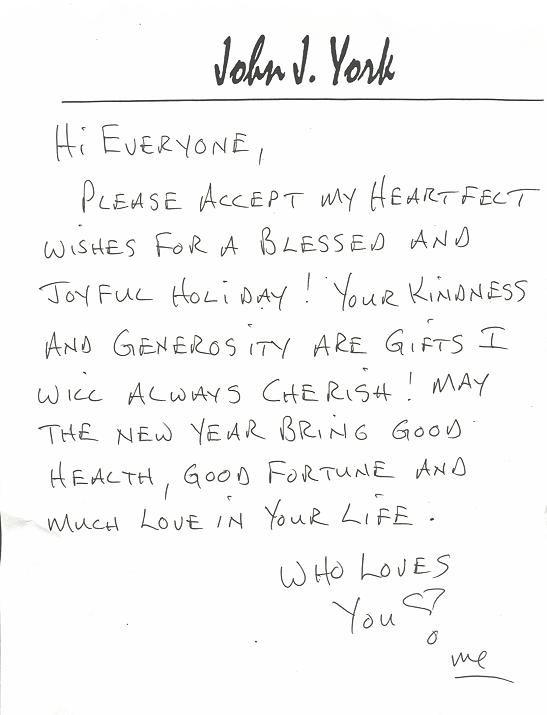 John J. York
Hi EVERYONE,
PLEASE ACCEPT MY HEARTFELT
WISHES FOR A BLESSED AND
JOYFUL HOLIDAY! YOUR KINDNESS
AND GENEROSITY ARE GIFTS I
WILL ALWAYS CHERISH! MAY
THE NEW YEAR BRING GOOD
HEALTH, GOOD FORTUNE AND
MUCH LOVE IN YOUR LIFE.
WHO LOVES
YOU?
me